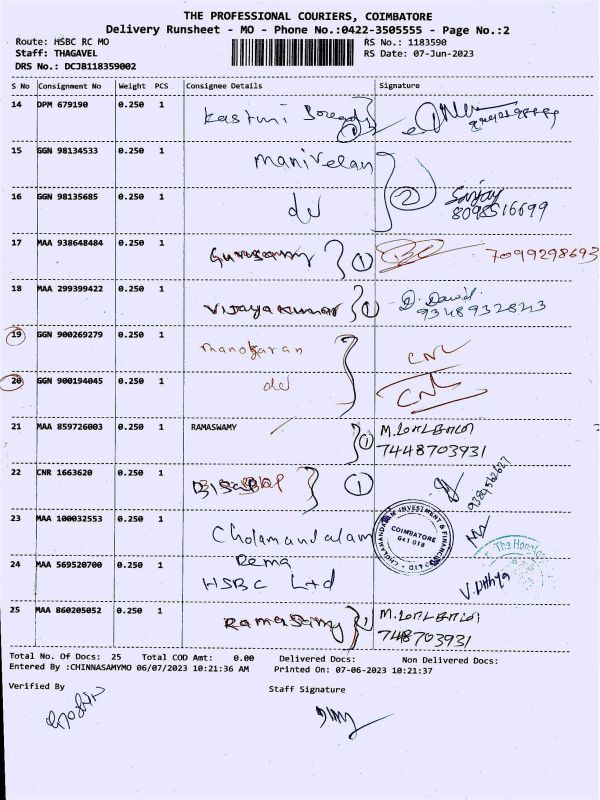 THE PROFESSIONAL COURIERS, COIMBATORE
Delivery Runsheet - MO - Phone No.:0422-3505555 - Page No.:2
Route: HSBC RC MO
RS No.: 1183590
Staff: THAGAVEL
RS Date: 07-Jun-2023
DRS No.: DCJB118359002
S No Consignment No Weight PCS Consignee Details Signature
14 DPM 679190 0.250 1
15 GGN 98134533 0.250 1 manivelan
16 GGN 98135685 0.250 1 do 2 Sanjay
8098516699
17 MAA 938648484 0.250 1 Gurusamy 1 7099298693
18 MAA 299399422 0.250 1 Vijayakumar 1 D. David
9348932843
19 GGN 900269279 0.250 1 manokaran CNL
20 GGN 900194045 0.250 1 do CNL
21 MAA 859726003 0.250 1 RAMASWAMY 1 M.
7448703931
22 CNR 1663620 0.250 1 1 9389562627
23 MAA 100032553 0.250 1 Cholamandalam
CHOLAMANDALAM INVESTMENT & FINANCE CO LTD
COIMBATORE
641 018
The
24 MAA 569520700 0.250 1 Rema
HSBC Ltd V. Dithya
25 MAA 860205052 0.250 1 Ramasamy 1 M.
7448703931
Total No. Of Docs: 25 Total COD Amt: 0.00 Delivered Docs: Non Delivered Docs:
Entered By :CHINNASAMYMO 06/07/2023 10:21:36 AM Printed On: 07-06-2023 10:21:37
Verified By Staff Signature